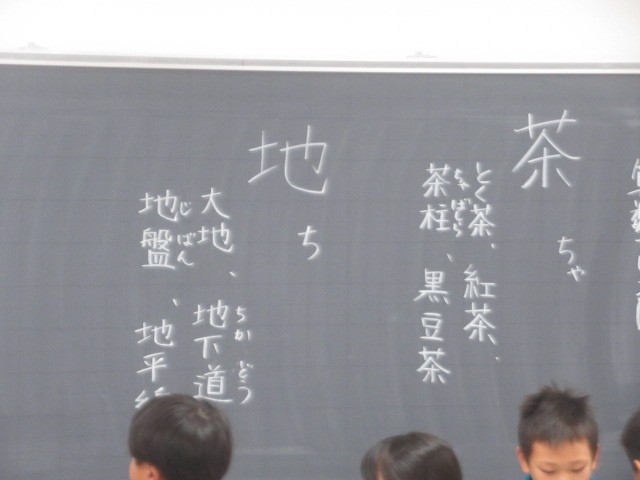 茶
ちゃ
とく茶、紅茶、
ちゃばしら
茶柱、黒豆茶
地
ち
ちかどう
大地、地下道
じばん
地盤、地平